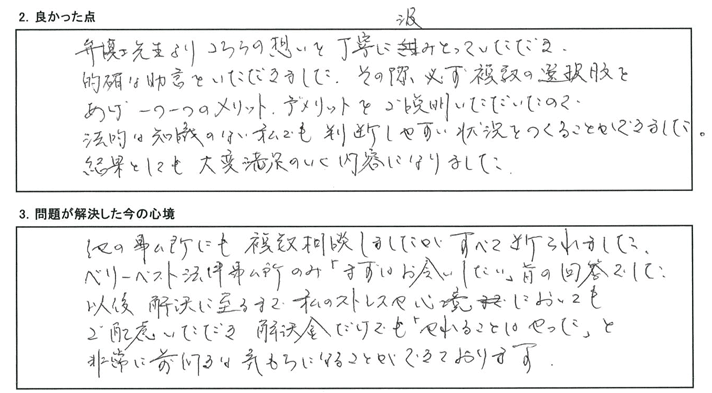 2. 良かった点
弁護士先生よりこちらの想いを丁寧に汲みとっていただき、
的確な助言をいただきました。その際、必ず複数の選択肢を
あげ一つ一つのメリット、デメリットをご説明いただいたので
法的な知識のない私でも判断しやすい状況をつくることができました。
結果としても大変満足のいく内容になりました
3. 問題が解決した今の心境
他の事ム所にも複数相談しましたがすべて断られました、
ベリーベスト法律事ム所のみ「まずはお会いしたい」旨の回答でした
以後解決に至るまで私のストレスや心境においても
ご配慮いただき解決金だけでも「やれることはやった」と
非常に前向きな気もちになることができております